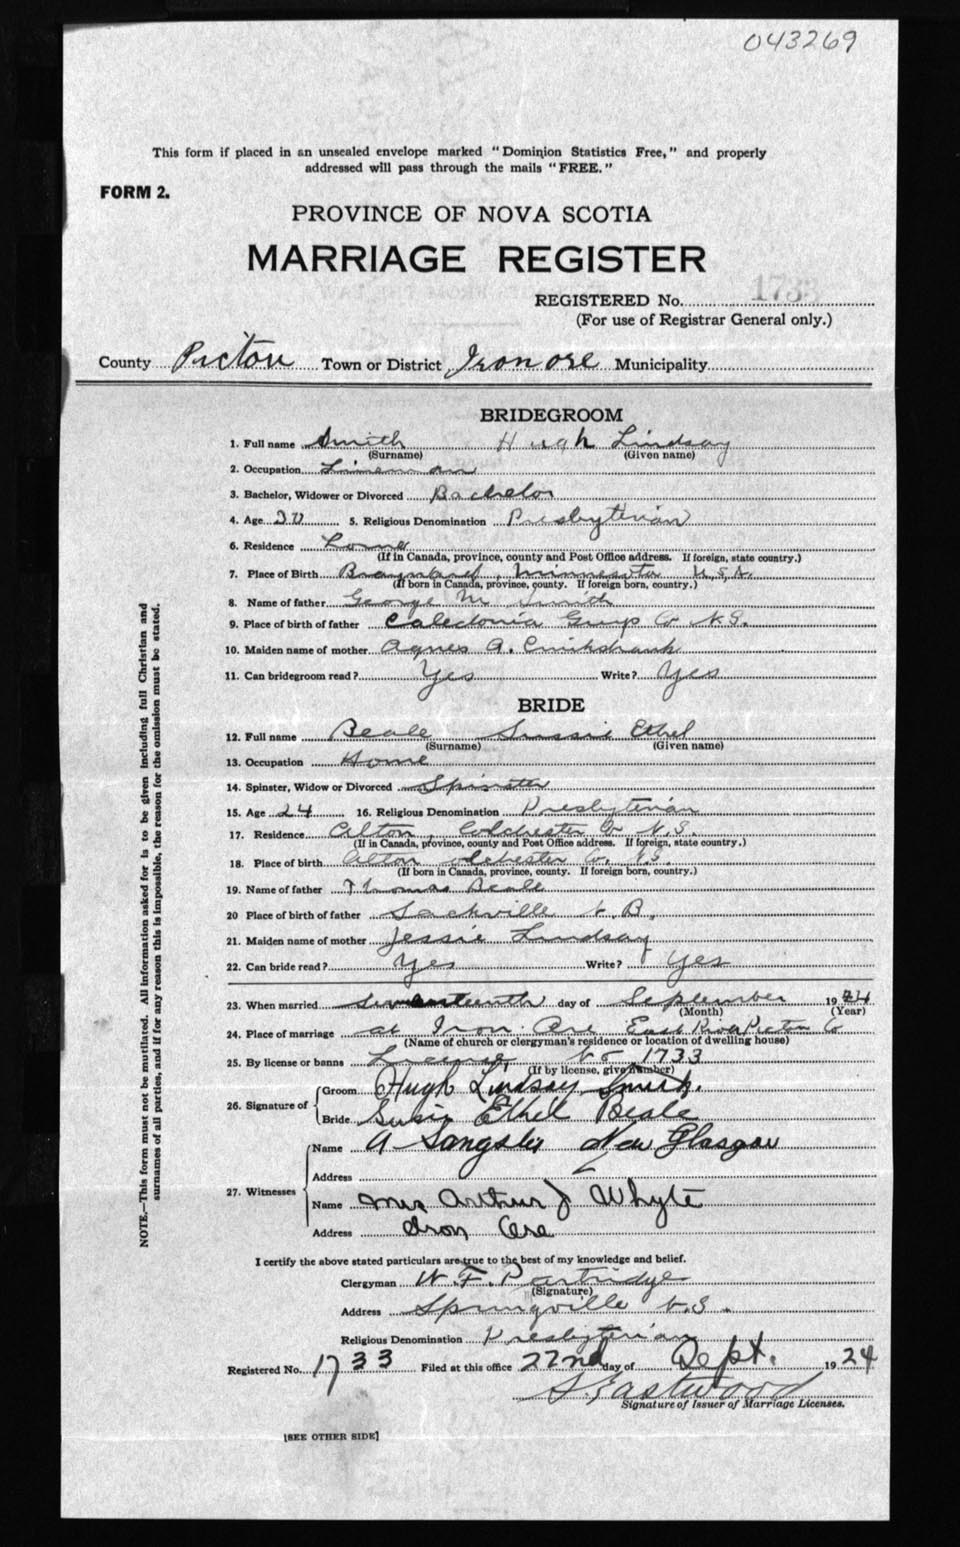 043269
This form if placed in an unsealed envelope marked "Dominion Statistics Free," and properly
addressed will pass through the mails "FREE."
FORM 2.
PROVINCE OF NOVA SCOTIA
MARRIAGE REGISTER
REGISTERED No. 1733
(For use of Registrar General only.)
County Pictou Town or District Iron ore Municipality
BRIDEGROOM
1. Full name Smith Hugh Lindsay
(Surname) (Given name)
2. Occupation Lineman
3. Bachelor, Widower or Divorced Bachelor
4. Age 30 5. Religious Denomination Presbyterian
6. Residence Lorne
(If in Canada, province, county and Post Office address. If foreign, state country.)
7. Place of Birth Minnesota U.S.A.
(If born in Canada, province, county. If foreign born, country.)
8. Name of father George M Smith
9. Place of birth of father Caledonia Guys Co N.S.
10. Maiden name of mother Agnes A. Cruikshank
11. Can bridegroom read? Yes Write? Yes
BRIDE
12. Full name Beale Sussie Ethel
(Surname) (Given name)
13. Occupation Home
14. Spinster, Widow or Divorced Spinster
15. Age 24 16. Religious Denomination Presbyterian
17. Residence Alton, Colchester Co N.S.
(If in Canada, province, county and Post Office address. If foreign, state country.)
18. Place of birth Alton Colchester Co. N.S.
(If born in Canada, province, county. If foreign born, country.)
19. Name of father Thomas Beale
20 Place of birth of father Sackville N.B.
21. Maiden name of mother Jessie Lindsay
22. Can bride read? Yes Write? Yes
23. When married Seventeenth day of September 1924
(Month) (Year)
24. Place of marriage at Iron Ore East River Pictou Co
(Name of church or clergyman's residence or location of dwelling house)
25. By license or banns License No 1733
(If by license, give number)
26. Signature of Groom Hugh Lindsay Smith.
Bride Susie Ethel Beale
27. Witnesses Name A Sangster New Glasgow
Address
Name Mrs Arthur J Whyte
Address Iron Ore
I certify the above stated particulars are true to the best of my knowledge and belief.
Clergyman W. F. Partridge
(Signature)
Address Springville N.S.
Religious Denomination Presbyterian
Registered No. 1733 Filed at this office 22nd day of Sept. 1924
S. Eastwood
Signature of Issuer of Marriage Licenses.
[SEE OTHER SIDE]
NOTE.—This form must not be mutilated. All information asked for is to be given including full Christian and
surnames of all parties, and if for any reason this is impossible, the reason for the omission must be stated.